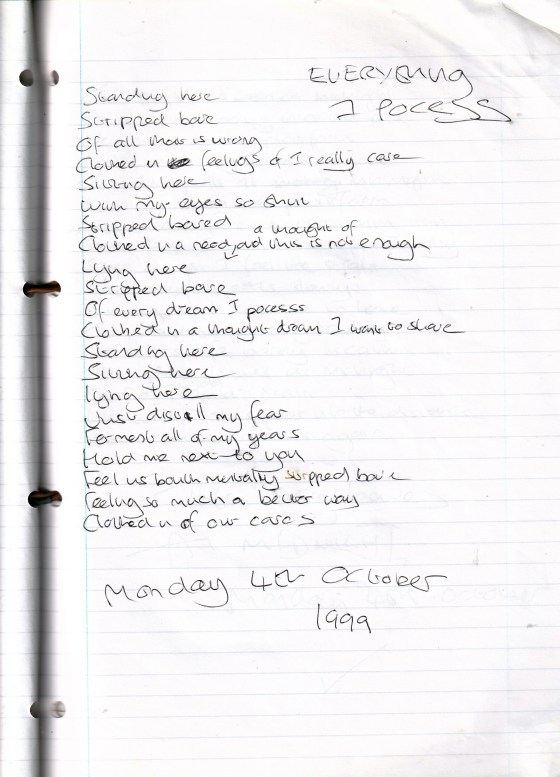 EVERYthing
I Pocess
Standing here
Stripped bare
Of all that is wrong
Clothed in feelings of I really care
Sitting here
With my eyes so shut
Stripped bared
a thought of
Clothed in a need, and this is not enough
Lying here
Stripped bare
Of every dream I pocesss
Clothed in a thought dream I want to share
Standing here
Sitting here
lying here
Just distill my fear
Forment all of my years
Hold me next to you
Feel us both mentally stripped bare
Feeling so much a better way
Clothed in of our cares
Monday 4th October
1999